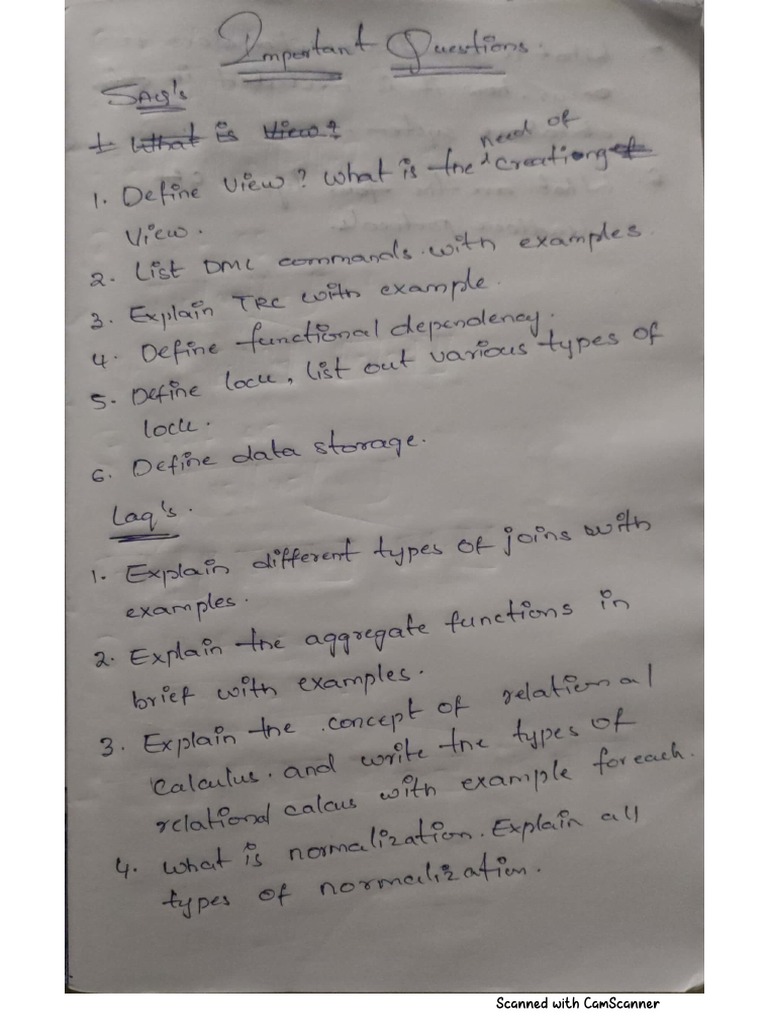 Important Questions.
SAQ's
1 What is View?
1. Define View? What is the need of creationg of
View.
2. List DML commands with examples.
3. Explain TRC with example.
4. Define functional dependency.
5. Define lock, list out various types of
lock.
6. Define data storage.
Laq's.
1. Explain different types of joins with
examples.
2. Explain the aggregate functions in
brief with examples.
3. Explain the concept of relational
calculus. and write the types of
relational calcus with example for each.
4. What is normalization. Explain all
types of normalization.
Scanned with CamScanner